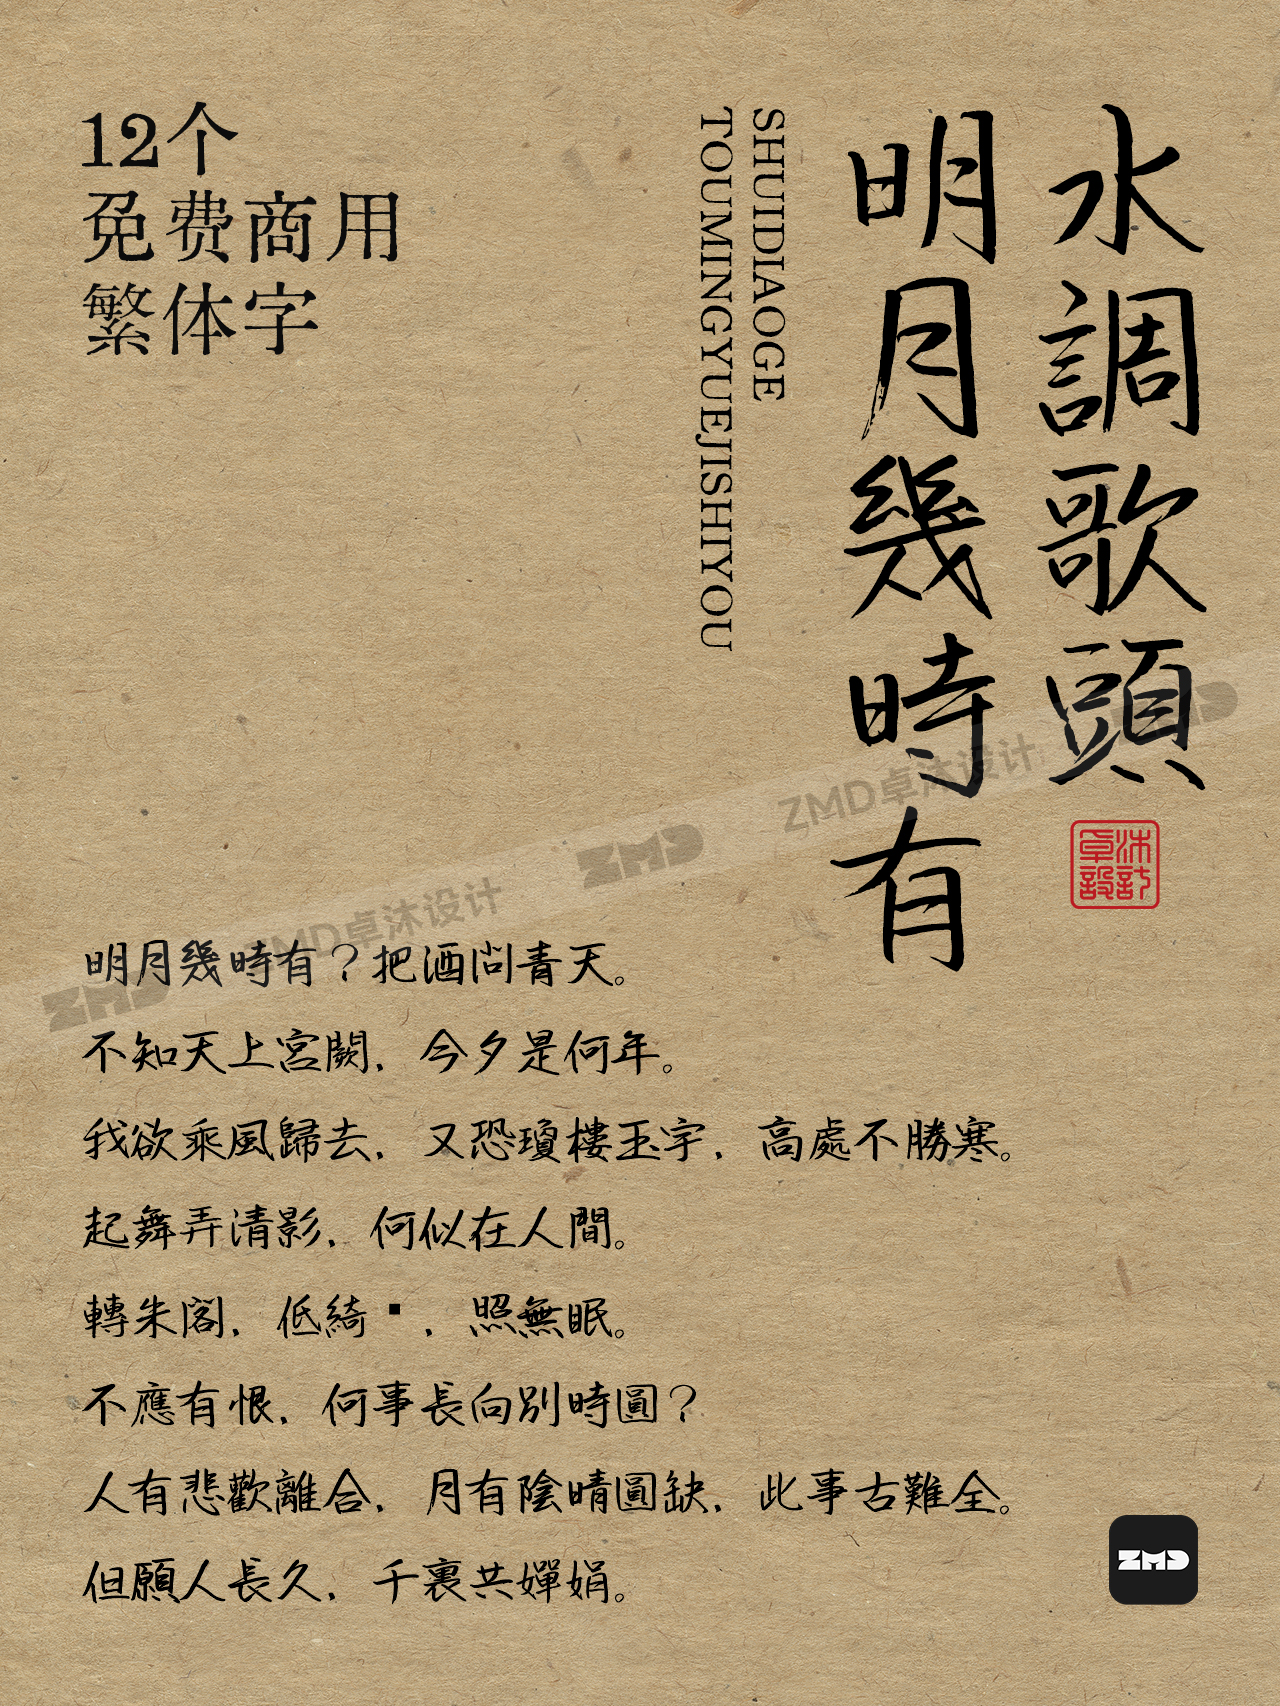 12个
免费商用
繁体字
水調歌頭
明月幾時有
SHUIDIAOGE
TOUMINGYUEJISHIYOU
沐計
卓設
ZMD
ZMD卓沐设计
ZMD
ZMD卓沐设计
ZMD
明月幾時有？把酒問青天。
不知天上宮闕，今夕是何年。
我欲乘風歸去，又恐瓊樓玉宇，高處不勝寒。
起舞弄清影，何似在人間。
轉朱閣，低綺▪，照無眠。
不應有恨，何事長向別時圓？
人有悲歡離合，月有陰晴圓缺，此事古難全。
但願人長久，千裏共嬋娟。
ZMD